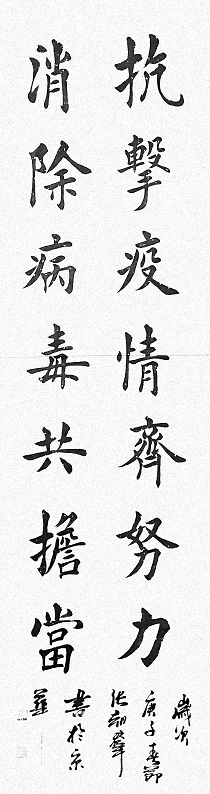 抗擊疫情齊努力
消除病毒共擔當
歲次
庚子春節
書於京
華